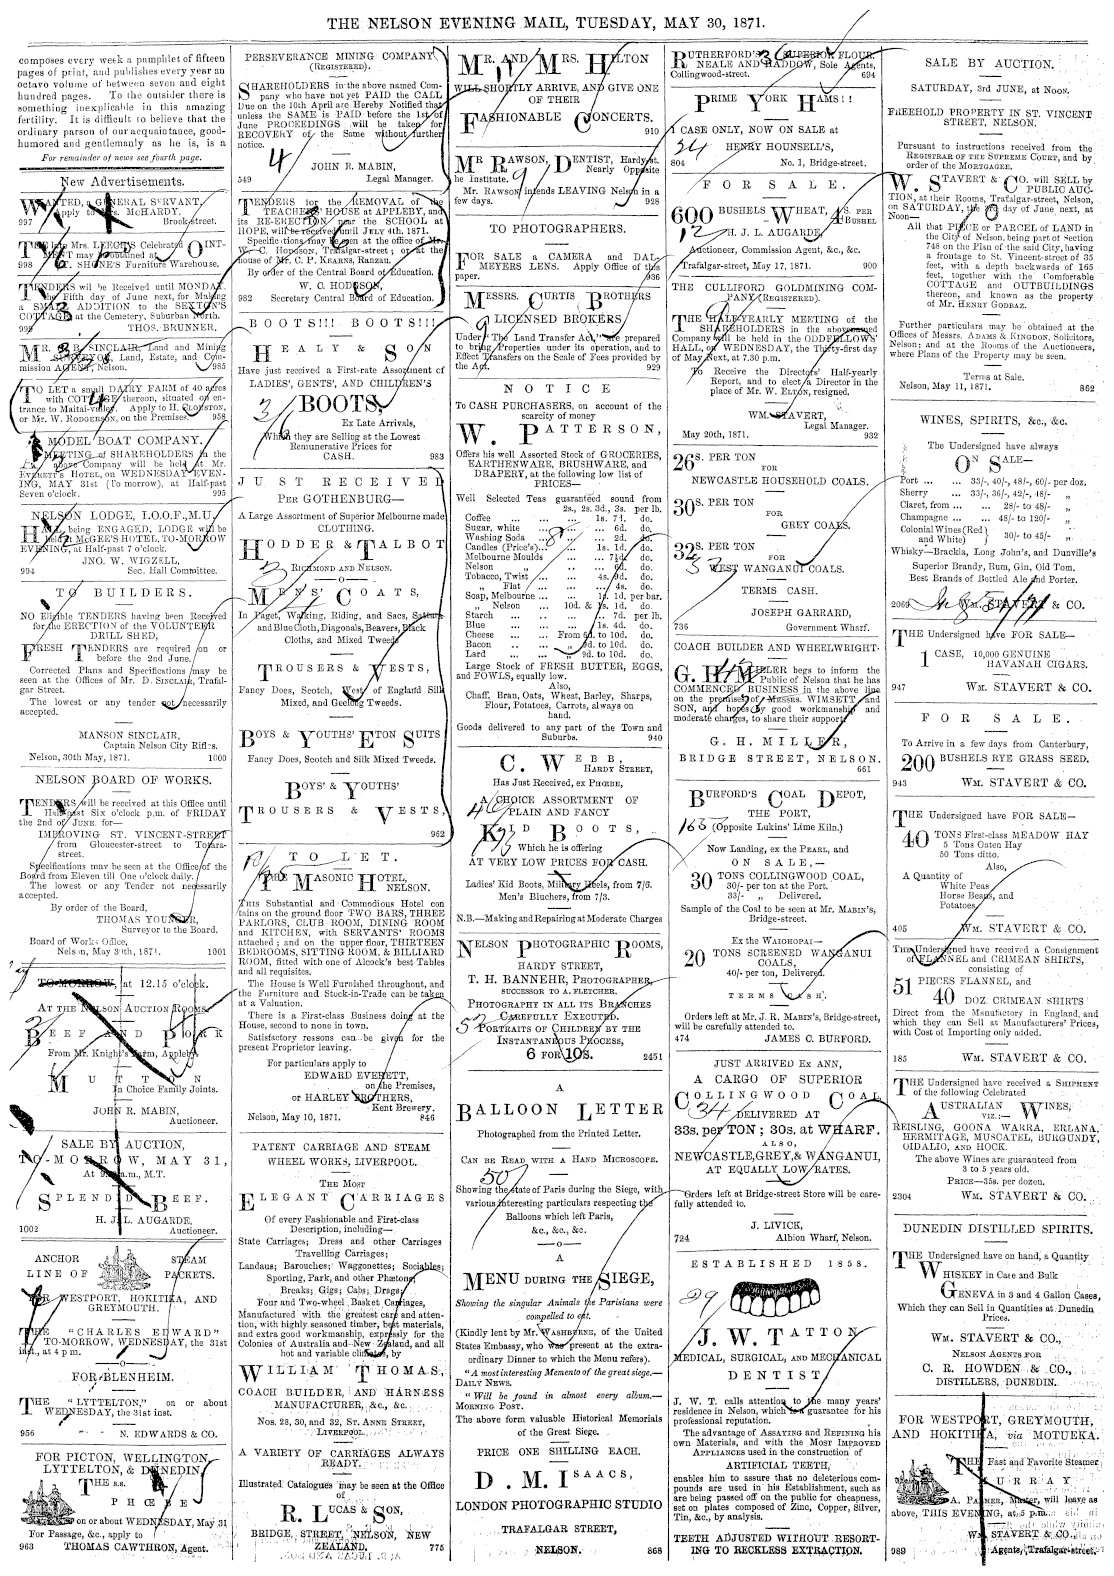 THE NELSON EVENING MAIL, TUESDAY, MAY 30, 1871.
composes every week a pamphlet of fifteen
pages of print, and publishes every year an
octavo volume of between seven and eight
hundred pages. To the outsider there is
something inexplicable in this amazing
fertility. It is difficult to believe that the
ordinary parson of our acquaintance, good-
humored and gentlemanly as he is, is a
For remainder of news see fourth page.
New Advertisements.
WANTED, A GENERAL SERVANT.
Apply to Mrs. McHARDY,
997 Brook-street.
THE late Mrs. LEECH'S Celebrated OINT-
MENT may be obtained at
998 C. SHONE'S Furniture Warehouse.
TENDERS will be received until MONDAY,
the Fifth day of June next, for Making
a SMALL ADDITION to the SEXTON'S
COTTAGE at the Cemetery, Suburban North.
999 THOS. BRUNNER.
MR. SINCLAIR, Land and Mining
SURVEYOR, Land, Estate, and Com-
mission AGENT, Nelson. 985
TO LET a small DAIRY FARM of 40 acres
with COTTAGE thereon, situated on en-
trance to Maitai-valley. Apply to H. CLOUSTON,
or Mr. W. RODGERSON, on the Premises. 958
MODEL BOAT COMPANY.
A MEETING of SHAREHOLDERS in the
above Company will be held at Mr.
EVERETT'S HOTEL, on WEDNESDAY EVEN-
ING, MAY 31st (To morrow), at Half-past
Seven o'clock. 995
NELSON LODGE, I.O.O.F., M.U.
HALL being ENGAGED, LODGE will be
held at McGEE'S HOTEL, TO-MORROW
EVENING, at Half-past 7 o'clock.
JNO. W. WIGZELL,
994 Sec. Hall Committee.
TO BUILDERS.
NO Eligible TENDERS having been Received
for the ERECTION of the VOLUNTEER
DRILL SHED,
FRESH TENDERS are required on or
before the 2nd June.
Corrected Plans and Specifications may be
seen at the Offices of Mr. D. SINCLAIR, Trafal-
gar Street.
The lowest or any tender not necessarily
accepted.
MANSON SINCLAIR,
Captain Nelson City Rifles.
Nelson, 30th May, 1871. 1000
NELSON BOARD OF WORKS.
TENDERS will be received at this Office until
Half-past Six o'clock p.m. of FRIDAY
the 2nd of JUNE, for—
IMPROVING ST. VINCENT-STREET
from Gloucester-street to Totara-
street.
Specifications may be seen at the Office of the
Board from Eleven till One o'clock daily.
The lowest or any Tender not necessarily
accepted.
By order of the Board,
THOMAS YOUNGER,
Surveyor to the Board.
Board of Works Office,
Nelson, May 30th, 1871. 1001
TO-MORROW, at 12.15 o'clock.
AT THE NELSON AUCTION ROOMS
BEEF AND PORK
From Mr. Knight's Farm, Appleby
MUTTON
In Choice Family Joints.
JOHN R. MABIN,
Auctioneer.
SALE BY AUCTION,
TO-MORROW, MAY 31,
At a.m., M.T.
SPLENDID BEEF.
H. J. L. AUGARDE,
1002 Auctioneer.
ANCHOR STEAM
LINE OF PACKETS.
FOR WESTPORT, HOKITIKA, AND
GREYMOUTH.
THE "CHARLES EDWARD"
TO-MORROW, WEDNESDAY, the 31st
inst., at 4 p.m.
FOR BLENHEIM.
THE "LYTTELTON," on or about
WEDNESDAY, the 31st inst.
956 N. EDWARDS & CO.
FOR PICTON, WELLINGTON,
LYTTELTON, & DUNEDIN,
THE s.s.
PHŒBE
on or about WEDNESDAY, May 31
For Passage, &c., apply to
963 THOMAS CAWTHRON, Agent.
PERSEVERANCE MINING COMPANY
(REGISTERED).
SHAREHOLDERS in the above named Com-
pany who have not yet PAID the CALL
Due on the 10th April are Hereby Notified that
unless the SAME is PAID before the 1st of
June PROCEEDINGS will be taken for
RECOVERY of the Same without further
notice.
4
JOHN R. MABIN,
549 Legal Manager.
TENDERS for the REMOVAL of the
TEACHERS' HOUSE at APPLEBY, and
its RE-ERECTION near the SCHOOL at
HOPE, will be received until JULY 4th, 1871.
Specifications may be seen at the office of Mr.
W. C. Hodgson, Trafalgar-street; or at the
office of Mr. C. P. KEARNS, Ranzau.
By order of the Central Board of Education.
W. C. HODGSON,
982 Secretary Central Board of Education.
BOOTS!!! BOOTS!!!
HEALY & SON
Have just received a First-rate Assortment of
LADIES', GENTS', AND CHILDREN'S
BOOTS,
Ex Late Arrivals,
Which they are Selling at the Lowest
Remunerative Prices for
CASH. 983
JUST RECEIVED
PER GOTHENBURG—
A Large Assortment of Superior Melbourne made
CLOTHING.
HODDER & TALBOT
RICHMOND AND NELSON.
MENS' COATS,
In Paget, Walking, Riding, and Sacs, Satara
and Blue Cloth, Diagonals, Beavers, Black
Cloths, and Mixed Tweeds
TROUSERS & VESTS,
Fancy Does, Scotch, West of England Silk
Mixed, and Geelong Tweeds.
BOYS & YOUTHS' ETON SUITS
Fancy Does, Scotch and Silk Mixed Tweeds.
BOYS' & YOUTHS'
TROUSERS & VESTS,
962
TO LET.
THE MASONIC HOTEL,
NELSON.
THIS Substantial and Commodious Hotel con
tains on the ground floor TWO BARS, THREE
PARLORS, CLUB ROOM, DINING ROOM
and KITCHEN, with SERVANTS' ROOMS
attached; and on the upper floor, THIRTEEN
BEDROOMS, SITTING ROOM, & BILLIARD
ROOM, fitted with one of Alcock's best Tables
and all requisites.
The House is Well Furnished throughout, and
the Furniture and Stock-in-Trade can be taken
at a Valuation.
There is a First-class Business doing at the
House, second to none in town.
Satisfactory reasons can be given for the
present Proprietor leaving.
For particulars apply to
EDWARD EVERETT,
on the Premises,
or HARLEY BROTHERS,
Kent Brewery.
Nelson, May 10, 1871. 846
PATENT CARRIAGE AND STEAM
WHEEL WORKS, LIVERPOOL.
The Most
ELEGANT CARRIAGES
Of every Fashionable and First-class
Description, including—
State Carriages; Dress and other Carriages
Travelling Carriages;
Landaus; Barouches; Waggonettes; Sociables;
Sporting, Park, and other Phætons;
Breaks; Gigs; Cabs; Drags;
Four and Two-wheel Basket Carriages,
Manufactured with the greatest care and atten-
tion, with highly seasoned timber, best materials,
and extra good workmanship, expressly for the
Colonies of Australia and New Zealand, and all
hot and variable climates, by
WILLIAM THOMAS,
COACH BUILDER, AND HARNESS
MANUFACTURER, &c., &c.
Nos. 28, 30, and 32, ST. ANNE STREET,
LIVERPOOL.
A VARIETY OF CARRIAGES ALWAYS
READY.
Illustrated Catalogues may be seen at the Office
of
R. LUCAS & SON,
BRIDGE, STREET, NELSON, NEW
ZEALAND. 775
MR. AND MRS. HILTON
WILL SHORTLY ARRIVE, AND GIVE ONE
OF THEIR
FASHIONABLE CONCERTS.
910
MR RAWSON, DENTIST, Hardy-st.
Nearly Opposite
the Institute.
Mr. RAWSON intends LEAVING Nelson in a
few days. 928
TO PHOTOGRAPHERS.
FOR SALE A CAMERA and DAL-
MEYERS LENS. Apply Office of this
paper. 936
MESSRS. CURTIS BROTHERS
LICENSED BROKERS,
Under "The Land Transfer Act," are prepared
to bring Properties under its operation, and to
Effect Transfers on the Scale of Fees provided by
the Act. 929
NOTICE
To CASH PURCHASERS, on account of the
scarcity of money
W. PATTERSON,
Offers his well Assorted Stock of GROCERIES,
EARTHENWARE, BRUSHWARE, and
DRAPERY, at the following low list of
PRICES—
Well Selected Teas guaranteed sound from
2s., 2s. 3d., 3s. per lb.
Coffee ... ... ... 1s. 7d. do.
Sugar, white ... ... 6d. do.
Washing Soda ... ... 2d. do.
Candles (Price's)... ... 1s. 1d. do.
Melbourne Moulds ... 7½d do.
Nelson „ ... ... 6d. do.
Tobacco, Twist ... ... 4s. 9d. do.
„ Flat ... ... 4s. do.
Soap, Melbourne ... 1s. 1d. per bar.
„ Nelson 10d. & 1s. 1d. do.
Starch ... ... ... 7d. per lb.
Blue ... ... ... 1s. 4d. do.
Cheese ... From 6d. to 10d. do.
Bacon ... ... „ 9d. to 10d. do.
Lard ... ... „ 9d. to 10d. do.
Large Stock of FRESH BUTTER, EGGS,
and FOWLS, equally low.
Also,
Chaff, Bran, Oats, Wheat, Barley, Sharps,
Flour, Potatoes, Carrots, always on
hand.
Goods delivered to any part of the Town and
Suburbs. 940
C. WEBB,
HARDY STREET,
Has Just Received, ex PHŒBE,
A CHOICE ASSORTMENT OF
PLAIN AND FANCY
KID BOOTS,
Which he is offering
AT VERY LOW PRICES FOR CASH.
Ladies' Kid Boots, Military Heels, from 7/6.
Men's Bluchers, from 7/3.
N.B.—Making and Repairing at Moderate Charges
NELSON PHOTOGRAPHIC ROOMS,
HARDY STREET,
T. H. BANNEHR, PHOTOGRAPHER,
SUCCESSOR TO A. FLETCHER.
PHOTOGRAPHY IN ALL ITS BRANCHES
CAREFULLY EXECUTED.
PORTRAITS OF CHILDREN BY THE
INSTANTANEOUS PROCESS,
6 FOR 10s. 2451
A
BALLOON LETTER
Photographed from the Printed Letter.
CAN BE READ WITH A HAND MICROSCOPE.
50
Showing the state of Paris during the Siege, with
various interesting particulars respecting the
Balloons which left Paris,
&c., &c., &c.
A
MENU DURING THE SIEGE,
Showing the singular Animals the Parisians were
compelled to eat.
(Kindly lent by Mr. WASHBURNE, of the United
States Embassy, who was present at the extra-
ordinary Dinner to which the Menu refers).
"A most interesting Memento of the great siege.—
DAILY NEWS.
"Will be found in almost every album.—
MORNING POST.
The above form valuable Historical Memorials
of the Great Siege.
PRICE ONE SHILLING EACH.
D. M. ISAACS,
LONDON PHOTOGRAPHIC STUDIO
TRAFALGAR STREET,
NELSON. 868
RUTHERFORD'S SUPERIOR FLOUR.
NEALE AND HADDOW, Sole Agents,
Collingwood-street. 694
PRIME YORK HAMS!!
1 CASE ONLY, NOW ON SALE at
HENRY HOUNSELL'S,
804 No. 1, Bridge-street.
FOR SALE.
600 BUSHELS WHEAT, 4s. PER
BUSHEL
H. J. L. AUGARDE,
Auctioneer, Commission Agent, &c., &c.
Trafalgar-street, May 17, 1871. 900
THE CULLIFORD GOLDMINING COM-
PANY (REGISTERED).
THE HALF-YEARLY MEETING of the
SHAREHOLDERS in the abovenamed
Company will be held in the ODDFELLOWS'
HALL, on WEDNESDAY, the Thirty-first day
of May Next, at 7.30 p.m.
To Receive the Directors' Half-yearly
Report, and to elect a Director in the
place of Mr. W. ELTON, resigned.
WM. STAVERT,
Legal Manager.
May 20th, 1871. 932
26s. PER TON
FOR
NEWCASTLE HOUSEHOLD COALS.
30s. PER TON
FOR
GREY COALS.
32s. PER TON
FOR
WEST WANGANUI COALS.
TERMS CASH.
JOSEPH GARRARD,
736 Government Wharf.
COACH BUILDER AND WHEELWRIGHT.
G. H. MILLER begs to inform the
Public of Nelson that he has
COMMENCED BUSINESS in the above line
on the premises of MESSRS. WIMSETT and
SON, and hopes by good workmanship and
moderate charges, to share their support.
G. H. MILLER,
BRIDGE STREET, NELSON.
661
BURFORD'S COAL DEPOT,
THE PORT,
(Opposite Lukins' Lime Kiln.)
Now Landing, ex the PEARL, and
ON SALE,—
30 TONS COLLINGWOOD COAL,
30/- per ton at the Port.
33/- „ Delivered.
Sample of the Coal to be seen at Mr. MABIN'S,
Bridge-street.
Ex the WAIOHOPAI—
20 TONS SCREENED WANGANUI
COALS,
40/- per ton, Delivered.
TERMS CASH.
Orders left at Mr. J. R. MABIN'S, Bridge-street,
will be carefully attended to.
474 JAMES C. BURFORD.
JUST ARRIVED Ex ANN,
A CARGO OF SUPERIOR
COLLINGWOOD COAL
34
DELIVERED AT
33s. per TON; 30s. at WHARF.
ALSO,
NEWCASTLE, GREY, & WANGANUI,
AT EQUALLY LOW RATES.
Orders left at Bridge-street Store will be care-
fully attended to.
J. LIVICK,
724 Albion Wharf, Nelson.
ESTABLISHED 1858.
29
J. W. TATTON
MEDICAL, SURGICAL, AND MECHANICAL
DENTIST,
J. W. T. calls attention to the many years'
residence in Nelson, which is a guarantee for his
professional reputation.
The advantage of ASSAYING and REFINING his
own Materials, and with the MOST IMPROVED
APPLIANCES used in the construction of
ARTIFICIAL TEETH,
enables him to assure that no deleterious com-
pounds are used in his Establishment, such as
are being passed off on the public for cheapness,
set on plates composed of Zinc, Copper, Silver,
Tin, &c., by analysis.
TEETH ADJUSTED WITHOUT RESORT-
ING TO RECKLESS EXTRACTION.
SALE BY AUCTION.
SATURDAY, 3rd JUNE, at Noon.
FREEHOLD PROPERTY IN ST. VINCENT
STREET, NELSON.
Pursuant to instructions received from the
REGISTRAR OF THE SUPREME COURT, and by
order of the MORTGAGEE.
W. STAVERT & CO. will SELL by
PUBLIC AUC-
TION, at their Rooms, Trafalgar-street, Nelson,
on SATURDAY, the day of June next, at
Noon—
All that PIECE or PARCEL of LAND in
the City of Nelson, being part of Section
748 on the Plan of the said City, having
a frontage to St. Vincent-street of 35
feet, with a depth backwards of 165
feet, together with the Comfortable
COTTAGE and OUTBUILDINGS
thereon, and known as the property
of Mr. HENRY GODBAZ.
Further particulars may be obtained at the
Offices of Messrs. ADAMS & KINGDON, Solicitors,
Nelson; and at the Rooms of the Auctioneers,
where Plans of the Property may be seen.
Terms at Sale.
Nelson, May 11, 1871. 862
WINES, SPIRITS, &c., &c.
The Undersigned have always
ON SALE—
Port ... ... 33/-, 40/-, 48/-, 60/- per doz.
Sherry 33/-, 36/-, 42/-, 48/- „
Claret, from ... 28/- to 48/- „
Champagne ... 48/- to 120/- „
Colonial Wines (Red
and White) } 30/- to 45/- „
Whisky—Brackla, Long John's, and Dunville's
Superior Brandy, Rum, Gin, Old Tom.
Best Brands of Bottled Ale and Porter.
2069 WM. STAVERT & CO.
THE Undersigned have FOR SALE—
1 CASE, 10,000 GENUINE
HAVANAH CIGARS.
947 WM. STAVERT & CO.
FOR SALE.
To Arrive in a few days from Canterbury,
200 BUSHELS RYE GRASS SEED.
943 WM. STAVERT & CO.
THE Undersigned have FOR SALE—
40 TONS First-class MEADOW HAY
5 Tons Oaten Hay
50 Tons ditto.
Also,
A Quantity of
White Peas
Horse Beans, and
Potatoes
405 WM. STAVERT & CO.
The Undersigned have received a Consignment
of FLANNEL and CRIMEAN SHIRTS,
consisting of
51 PIECES FLANNEL, and
40 DOZ. CRIMEAN SHIRTS
Direct from the Manufactory in England, and
which they can Sell at Manufacturers' Prices,
with Cost of Importing only added.
185 WM. STAVERT & CO.
THE Undersigned have received a SHIPMENT
of the following Celebrated
AUSTRALIAN WINES,
VIZ.:—
REISLING, GOONA WARRA, ERLANA,
HERMITAGE, MUSCATEL, BURGUNDY,
OIDALIO, AND HOCK.
The above Wines are guaranteed from
3 to 5 years old.
PRICE—35s. per dozen.
2304 WM. STAVERT & CO.
DUNEDIN DISTILLED SPIRITS.
THE Undersigned have on hand, a Quantity
WHISKEY in Case and Bulk
GENEVA in 3 and 4 Gallon Cases,
Which they can Sell in Quantities at Dunedin
Prices.
WM. STAVERT & CO.,
NELSON AGENTS FOR
C. R. HOWDEN & CO.,
DISTILLERS, DUNEDIN.
FOR WESTPORT, GREYMOUTH,
AND HOKITIKA, via MOTUEKA.
THE Fast and Favorite Steamer
MURRAY
A. PALMER, Master, will leave as
above, THIS EVENING, at 5 p.m.
WM. STAVERT & CO.,
989 Agents, Trafalgar-street.